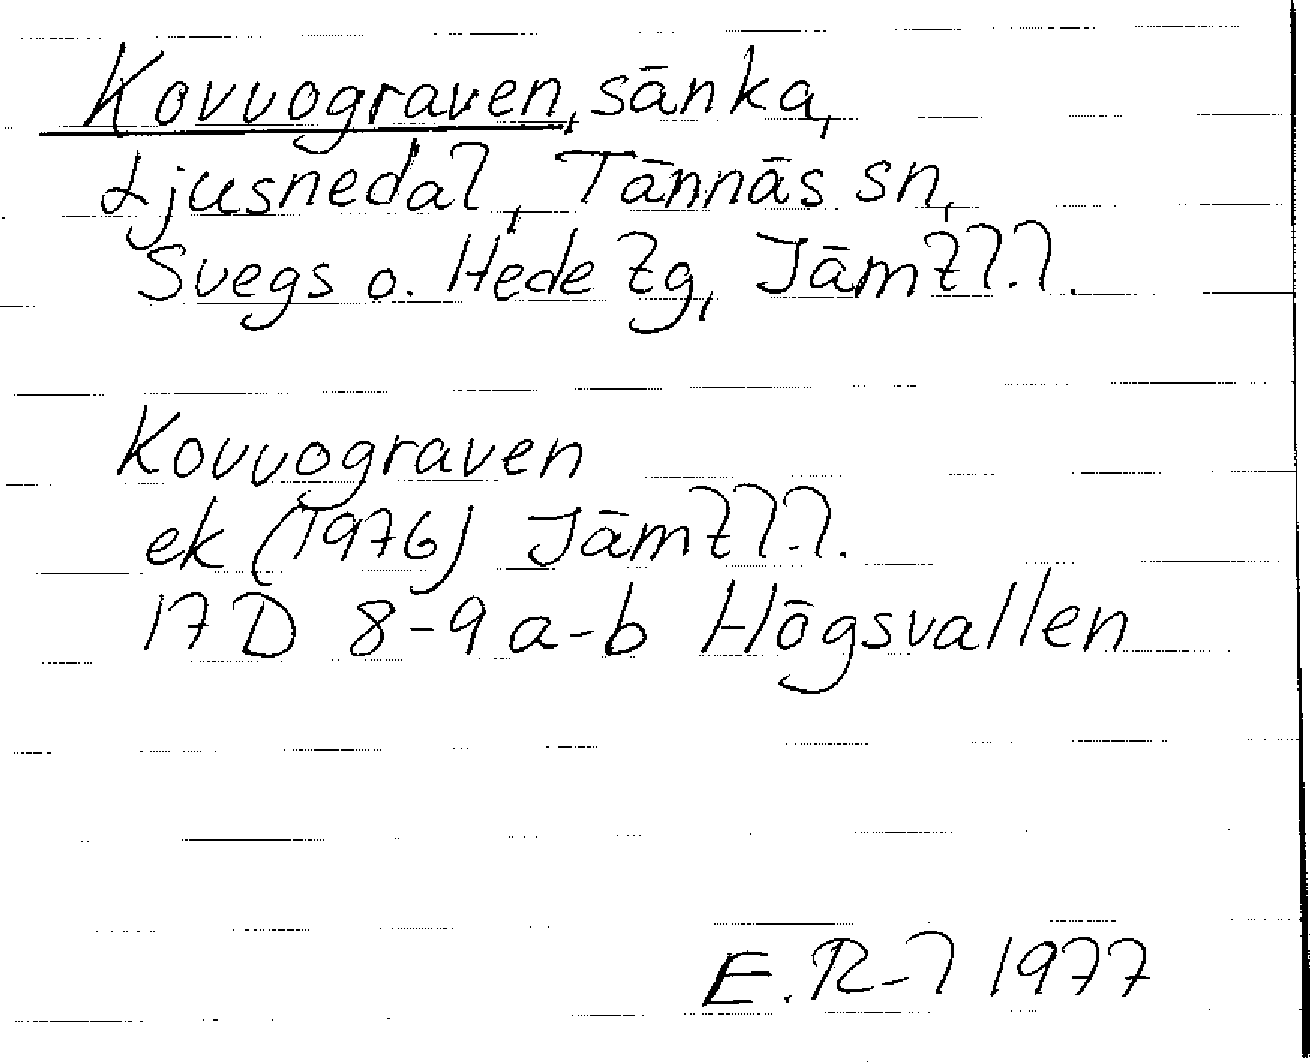 Kovuograven, sänka,
Ljusnedal, Tännäs sn,
Svegs o. Hede tg, Jämtl.l.
Kovuograven
ek (1976) Jämtl.l.
17 D 8-9 a-b Högsvallen
E.R-l 1977